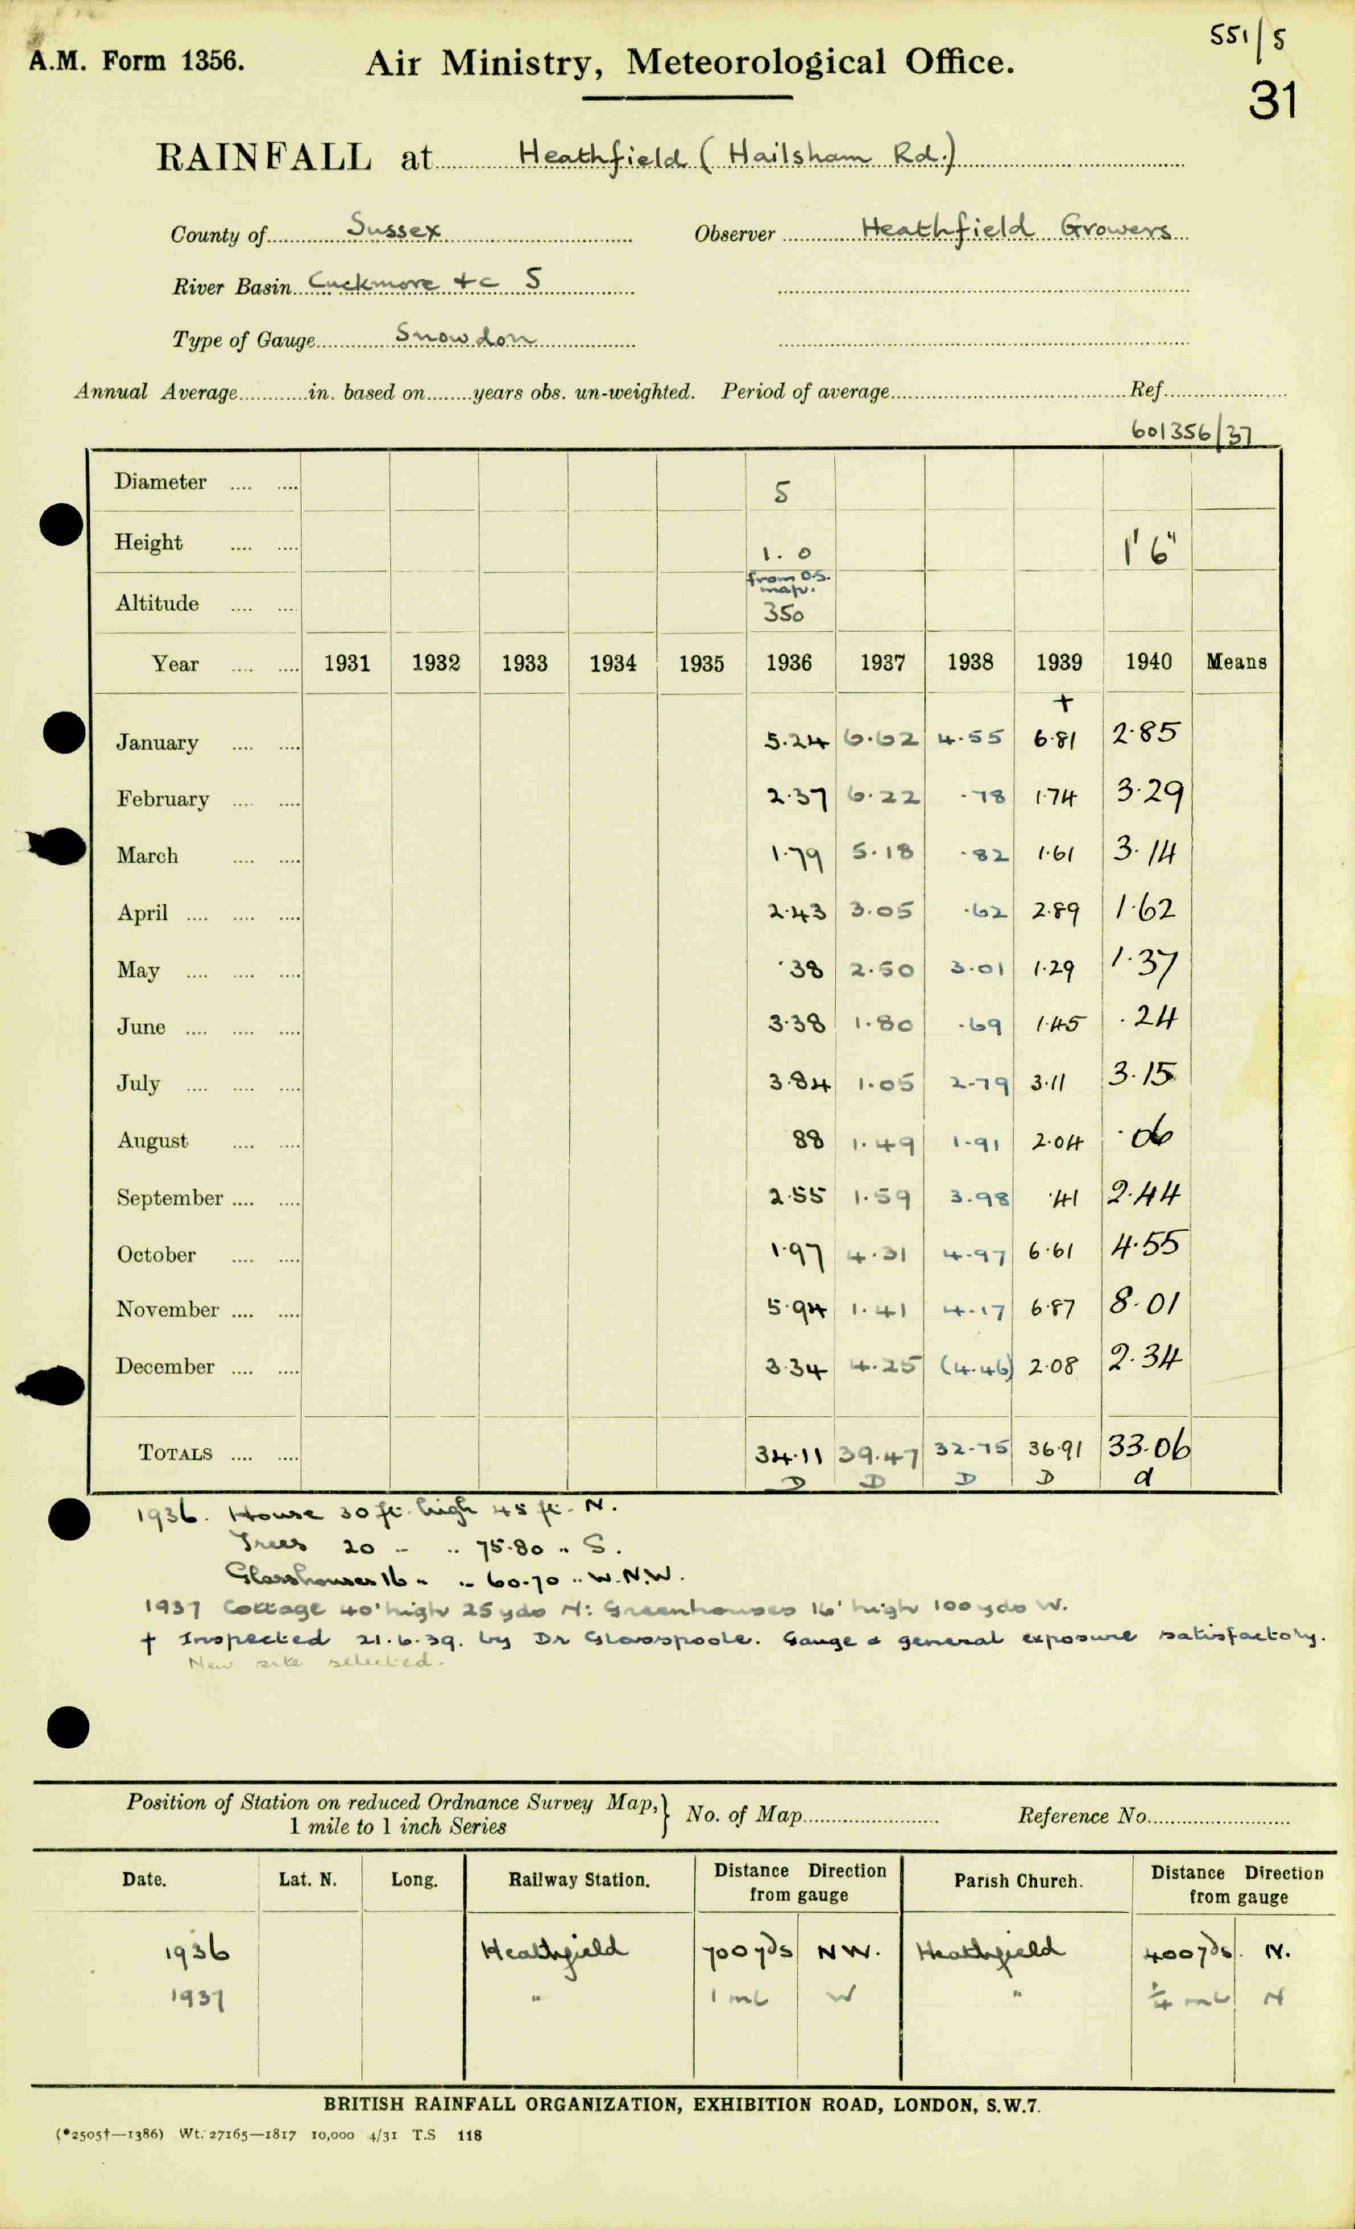 551/5
A.M. Form 1356. Air Ministry, Meteorological Office.
31
RAINFALL at Heathfield (Hailsham Rd.)
County of Sussex Observer Heathfield Growers
River Basin Cuckmore +c 5
Type of Gauge Snowdon
Annual Average............in. based on........years obs. un-weighted. Period of average.................... Ref....................
601356/37
Diameter .... .... 5
Height .... .... 1.0 1'6"
from O.S. map.
Altitude .... .... 350
Year .... .... 1931 1932 1933 1934 1935 1936 1937 1938 1939 1940 Means
+
January .... .... 5.24 6.62 4.55 6.81 2.85
February .... .... 2.37 6.22 .78 1.74 3.29
March .... .... 1.79 5.18 .82 1.61 3.14
April .... .... .... 2.43 3.05 .62 2.89 1.62
May .... .... .... .38 2.50 3.01 1.29 1.37
June .... .... .... 3.38 1.80 .69 1.45 .24
July .... .... .... 3.84 1.05 2.79 3.11 3.15
August .... .... 88 1.49 1.91 2.04 .06
September .... .... 2.55 1.59 3.98 .41 2.44
October .... .... 1.97 4.31 4.97 6.61 4.55
November .... .... 5.94 1.41 4.17 6.87 8.01
December .... .... 3.34 4.25 (4.46) 2.08 2.34
TOTALS .... .... 34.11 39.47 32.75 36.91 33.06
D D D D d
1936. House 30 ft. high 45 ft. N.
Trees 20 " " 75.80 " S.
Glasshouses 16 " " 60.70 " W.N.W.
1937 Cottage 40' high 25 yds N: Greenhouses 16' high 100 yds W.
† Inspected 21.6.39. by Dr Glasspoole. Gauge & general exposure satisfactory.
New site selected.
Position of Station on reduced Ordnance Survey Map, 1 mile to 1 inch Series } No. of Map.................... Reference No....................
Date. Lat. N. Long. Railway Station. Distance Direction from gauge Parish Church. Distance Direction from gauge
1936 Heathfield 700 yds NW. Heathfield 400 yds. N.
1937 " 1 ml W " ¼ ml N
BRITISH RAINFALL ORGANIZATION, EXHIBITION ROAD, LONDON, S.W.7.
(*2505†—1386) Wt. 27165—1817 10,000 4/31 T.S 118